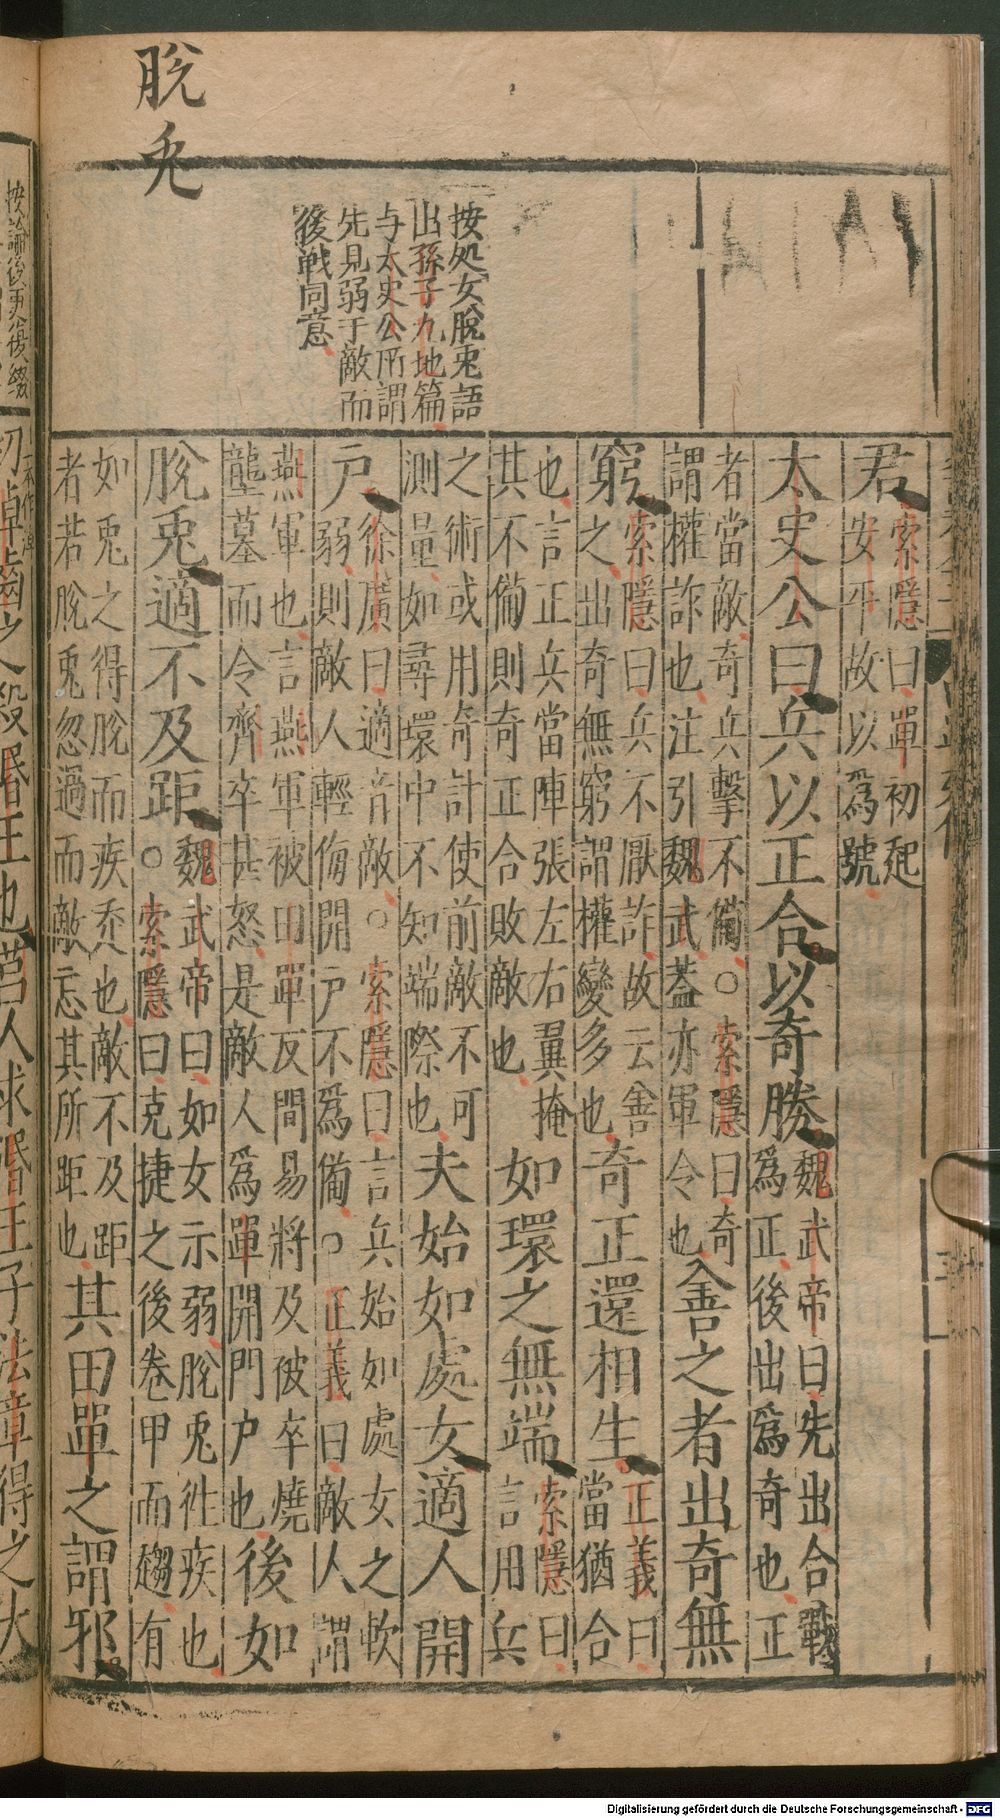 脫兎
按処女脫兎語
出孫子九地篇
与太史公所謂
先見弱于敵而
後戦同意
君索隱曰單初起
安平故以爲號
太史公曰兵以正合以奇勝魏武帝曰先出合戰
爲正後出爲奇也正
者當敵奇兵擊不備○索隱曰奇
謂權詐也注引魏武蓋亦軍令也善之者出奇無
窮索隱曰兵不厭詐故云善
之出奇無窮謂權變多也奇正還相生正義曰
當猶合
也言正兵當陣張左右翼掩
其不備則奇正合敗敵也如環之無端索隱曰
言用兵
之術或用奇計使前敵不可
測量如尋環中不知端際也夫始如處女適人開
戸徐廣曰適音敵○索隱曰言兵始如處女之軟
弱則敵人輕侮開戸不爲備○正義曰敵人謂
燕軍也言燕軍被田單反間易將及被卒燒
壟墓而令齊卒甚怒是敵人爲單開門户也後如
脫兎適不及距魏武帝曰如女示弱脫兎徃疾也
○索隱曰克捷之後卷甲而趨有
如兎之得脫而疾走也敵不及距
者若脫兎忽過而敵忘其所距也其田單之謂邪
初淖齒之殺湣王也莒人求湣王子法章得之太
Digitalisierung gefördert durch die Deutsche Forschungsgemeinschaft - DFG